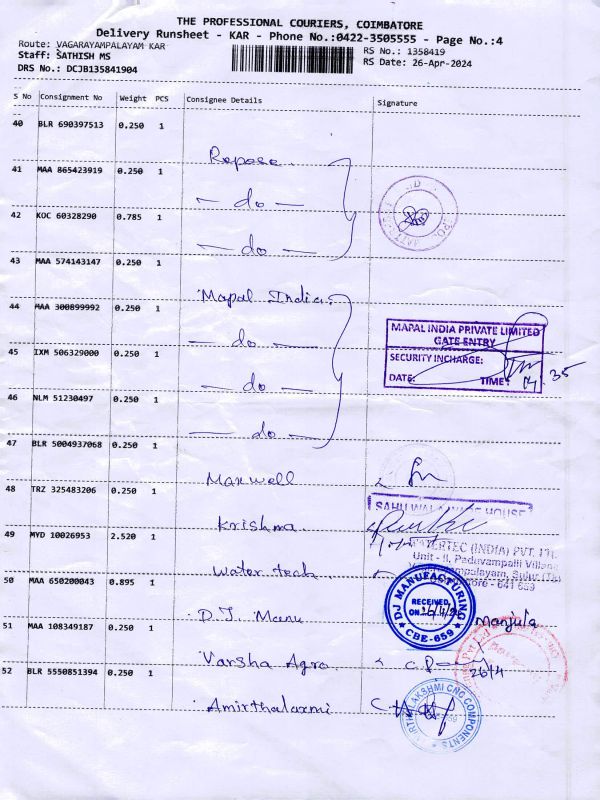 THE PROFESSIONAL COURIERS, COIMBATORE
Delivery Runsheet - KAR - Phone No.:0422-3505555 - Page No.:4
Route: VAGARAYAMPALAYAM KAR
RS No.: 1358419
Staff: SATHISH MS
RS Date: 26-Apr-2024
DRS No.: DCJB135841904
S No Consignment No Weight PCS Consignee Details Signature
40 BLR 690397513 0.250 1
Repose
41 MAA 865423919 0.250 1
— do —
42 KOC 60328290 0.785 1
— do —
43 MAA 574143147 0.250 1
Mapal India
44 MAA 300899992 0.250 1
— do —
MAPAL INDIA PRIVATE LIMITED
GATE ENTRY
SECURITY INCHARGE:
DATE: TIME: 14.35
45 IXM 506329000 0.250 1
— do —
46 NLM 51230497 0.250 1
— do —
47 BLR 5004937068 0.250 1
Maxwell
48 TRZ 325483206 0.250 1
Krishma
49 MYD 10026953 2.520 1
WATERTEC (INDIA) PVT. LTD.
Unit - II, Paduvampalli Village
Water tech
50 MAA 650200043 0.895 1
DJ MANUFACTURING
RECEIVED
ON
CBE-659
D.J. Manu
Manjula
51 MAA 108349187 0.250 1
Varsha Agro
C.P
26/4
52 BLR 5550851394 0.250 1
Amirthalaxmi